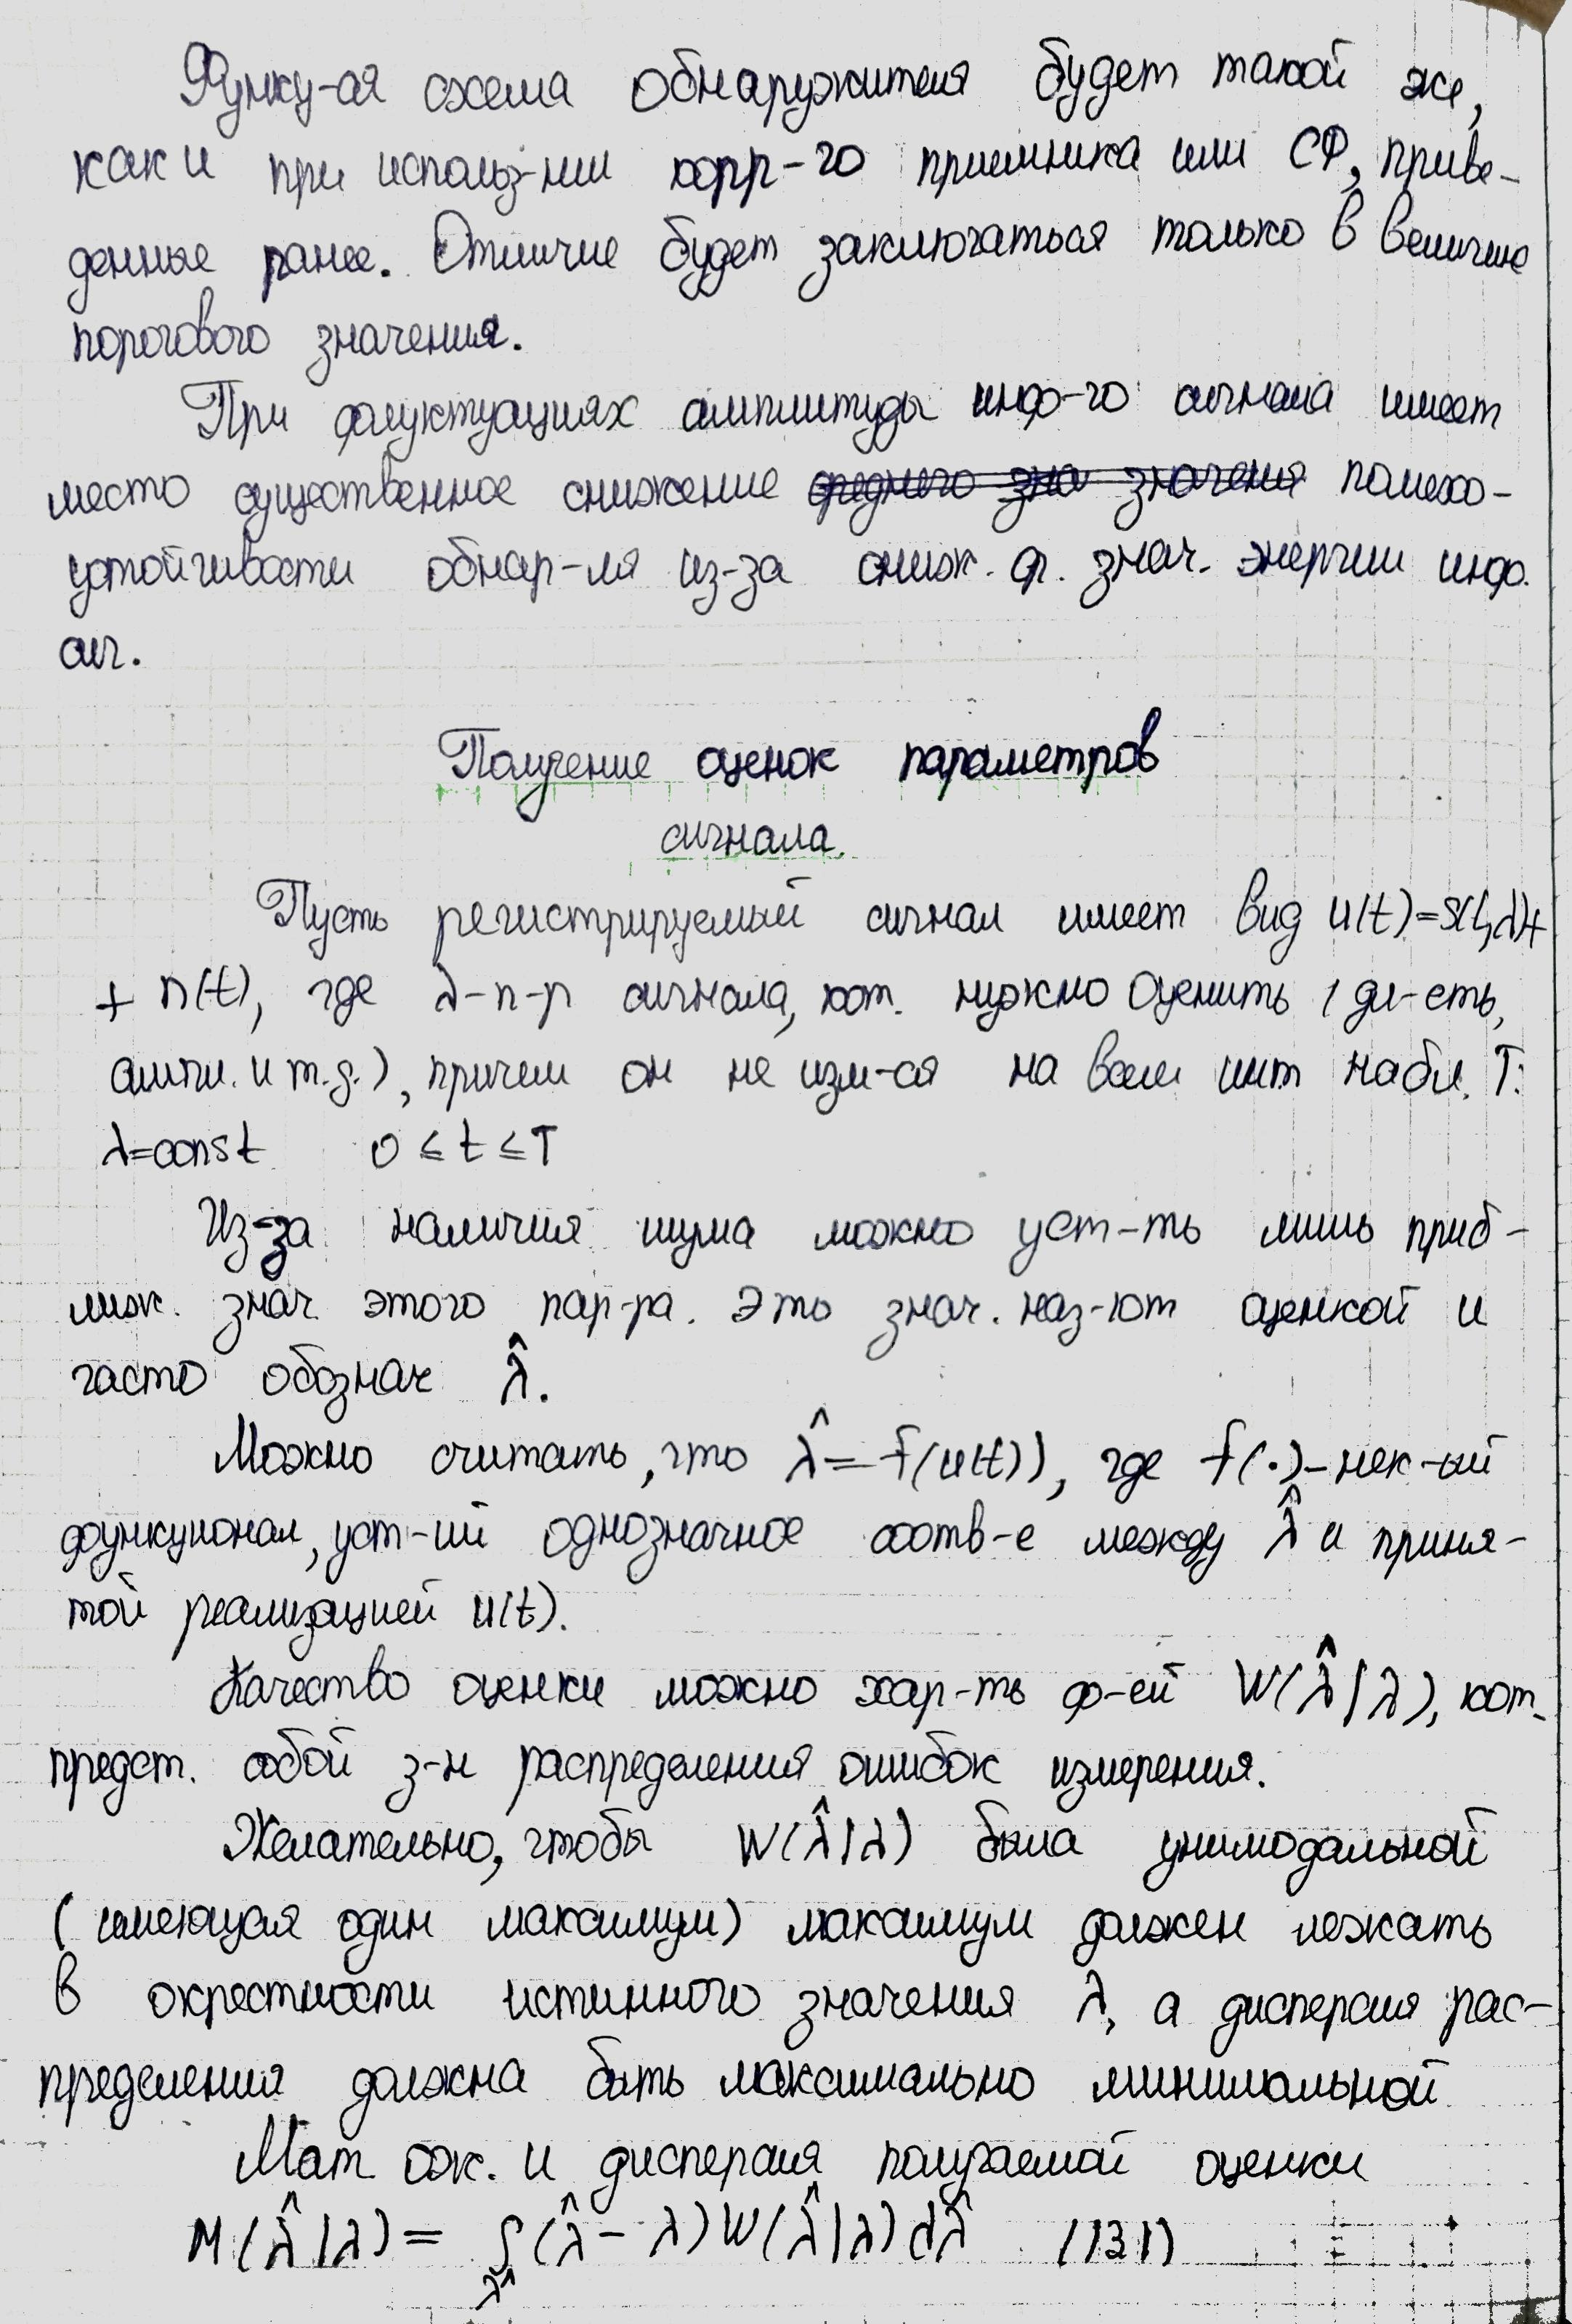 Функц-ая схема обнаружителя будет такой же,
как и при использ-нии корр-го приемника или СФ, приве-
денные ранее. Отличие будет заключаться только в величине
порогового значения.
При флуктуациях амплитуды инф-го сигнала имеет
место существенное снижение среднего зна значения помехо-
устойчивости обнар-ля из-за сниж. ср. знач. энергии инф.
сиг.
Получение оценок параметров
сигнала.
Пусть регистрируемый сигнал имеет вид u(t)=S(t,λ)+
+ n(t), где λ-п-р сигнала, кот. нужно оценить (дл-сть,
ампл. и т.д.), причем он не изм-ся на всем инт набл. T:
λ=const 0 ≤ t ≤ T
Из-за наличия шума можно уст-ть лишь приб-
лиж. знач этого пар-ра. Это знач. наз-ют оценкой и
часто обознач λ̂.
Можно считать, что λ̂ = f(u(t)), где f(·)- нек-ый
функционал, уст-ий однозначное соотв-е между λ̂ и приня-
той реализацией u(t).
Качество оценки можно хар-ть ф-ей W(λ̂|λ), кот.
предст. собой з-н распределения ошибок измерения.
Желательно, чтобы W(λ̂|λ) была унимодальной
(имеющая один максимум) максимум должен лежать
в окрестности истинного значения λ, а дисперсия рас-
пределения должна быть максимально минимальной
Мат ож. и дисперсия получаемой оценки
M(λ̂|λ) = ∫(λ̂ - λ)W(λ̂|λ)dλ̂ (131)
λ̂